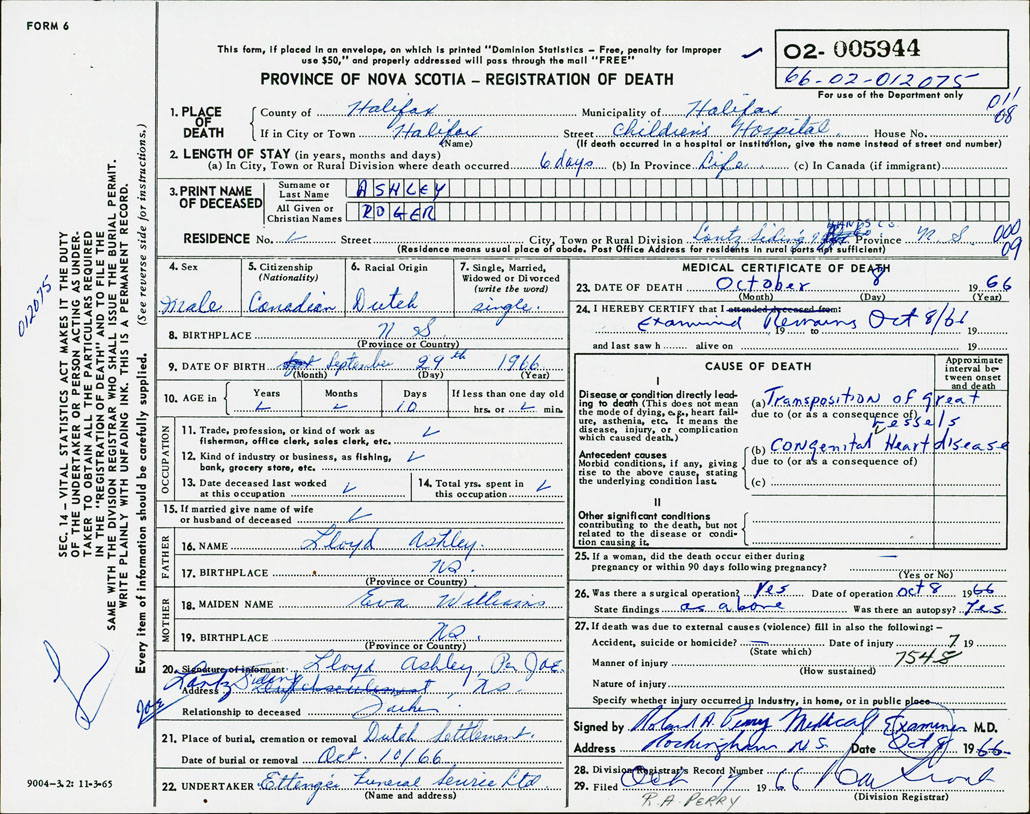 FORM 6
This form, if placed in an envelope, on which is printed "Dominion Statistics – Free, penalty for improper
use $50," and properly addressed will pass through the mail "FREE"
PROVINCE OF NOVA SCOTIA – REGISTRATION OF DEATH
02- 005944
66-02-012075
For use of the Department only
011
08
1. PLACE OF DEATH
County of Halifax Municipality of Halifax
If in City or Town Halifax Street Children's Hospital House No.
(Name) (If death occurred in a hospital or institution, give the name instead of street and number)
2. LENGTH OF STAY (in years, months and days)
(a) In City, Town or Rural Division where death occurred 6 days (b) In Province Life (c) In Canada (if immigrant)
3. PRINT NAME OF DECEASED
Surname or Last Name ASHLEY
All Given or Christian Names ROGER
RESIDENCE No. Street City, Town or Rural Division Lantz Siding HANTS CO. Province N S.
(Residence means usual place of abode. Post Office Address for residents in rural parts not sufficient)
000
09
4. Sex
Male
5. Citizenship
(Nationality)
Canadian
6. Racial Origin
Dutch
7. Single, Married,
Widowed or Divorced
(write the word)
single.
8. BIRTHPLACE N S
(Province or Country)
9. DATE OF BIRTH September 29th 1966
(Month) (Day) (Year)
10. AGE in Years Months Days If less than one day old
10 hrs. or min.
OCCUPATION
11. Trade, profession, or kind of work as
fisherman, office clerk, sales clerk, etc.
12. Kind of industry or business, as fishing,
bank, grocery store, etc.
13. Date deceased last worked
at this occupation
14. Total yrs. spent in
this occupation
15. If married give name of wife
or husband of deceased
FATHER
16. NAME Lloyd Ashley.
17. BIRTHPLACE NS.
(Province or Country)
MOTHER
18. MAIDEN NAME Eva Williams
19. BIRTHPLACE NS.
(Province or Country)
20. Signature of informant Lloyd Ashley Per Joe.
Lantz Siding
Address , NS.
Joe
Relationship to deceased Father
21. Place of burial, cremation or removal Dutch Settlement.
Date of burial or removal Oct. 10/66
22. UNDERTAKER Ettinger Funeral Service Ltd
(Name and address)
MEDICAL CERTIFICATE OF DEATH
23. DATE OF DEATH October 8 1966
(Month) (Day) (Year)
24. I HEREBY CERTIFY that I attended deceased from:
Examined Remains Oct 8/66
19 to 19
and last saw h alive on 19
CAUSE OF DEATH
Approximate
interval be-
tween onset
and death
I
Disease or condition directly lead-
ing to death (This does not mean
the mode of dying, e.g., heart fail-
ure, asthenia, etc. It means the
disease, injury, or complication
which caused death.)
(a) Transposition of great
due to (or as a consequence of)
Vessels
Antecedent causes
Morbid conditions, if any, giving
rise to the above cause, stating
the underlying condition last.
(b) Congenital Heart disease
due to (or as a consequence of)
(c)
II
Other significant conditions
contributing to the death, but not
related to the disease or condi-
tion causing it.
25. If a woman, did the death occur either during
pregnancy or within 90 days following pregnancy?
(Yes or No)
26. Was there a surgical operation? Yes Date of operation Oct 8 1966
State findings as above Was there an autopsy? Yes
27. If death was due to external causes (violence) fill in also the following:–
Accident, suicide or homicide? Date of injury 19
(State which)
Manner of injury
(How sustained)
Nature of injury
Specify whether injury occurred in Industry, in home, or in public place
Signed by Roland A. Perry Medical Examiner M.D.
Address Rockingham N.S. Date Oct 8 1966
28. Division Registrar's Record Number
29. Filed Oct 17 1966
(Division Registrar)
R.A. PERRY
SEC. 14 – VITAL STATISTICS ACT MAKES IT THE DUTY
OF THE UNDERTAKER OR PERSON ACTING AS UNDER-
TAKER TO OBTAIN ALL THE PARTICULARS REQUIRED
IN THE "REGISTRATION OF DEATH" AND TO FILE THE
SAME WITH THE DIVISION REGISTRAR WHO SHALL ISSUE THE BURIAL PERMIT.
WRITE PLAINLY WITH UNFADING INK. THIS IS A PERMANENT RECORD.
Every item of information should be carefully supplied. (See reverse side for instructions.)
012075
9004-3.2: 11-3-65